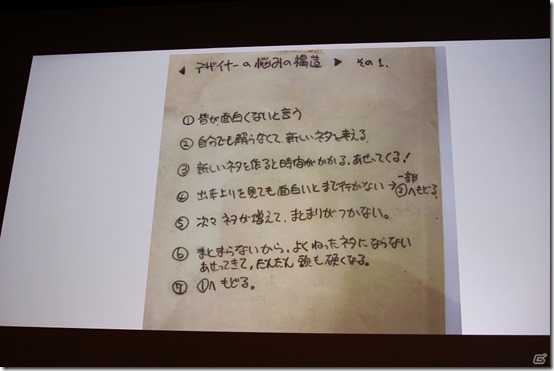 ◀ デザイナーの悩みの構造 ▶ その1.
① 皆が、面白くないと言う
② 自分でも解らなくて、新しいネタを考える。
③ 新しいネタを作ると時間がかかる、あせってくる!
④ 出来上りを見ても面白いとまで行かない→一部②へもどる
⑤ 次々ネタが増えて、まとまりがつかない。
⑥ まとまらないから、よくねったネタにならない
あせってきて、だんだん頭も硬くなる。
⑦ ①へもどる。